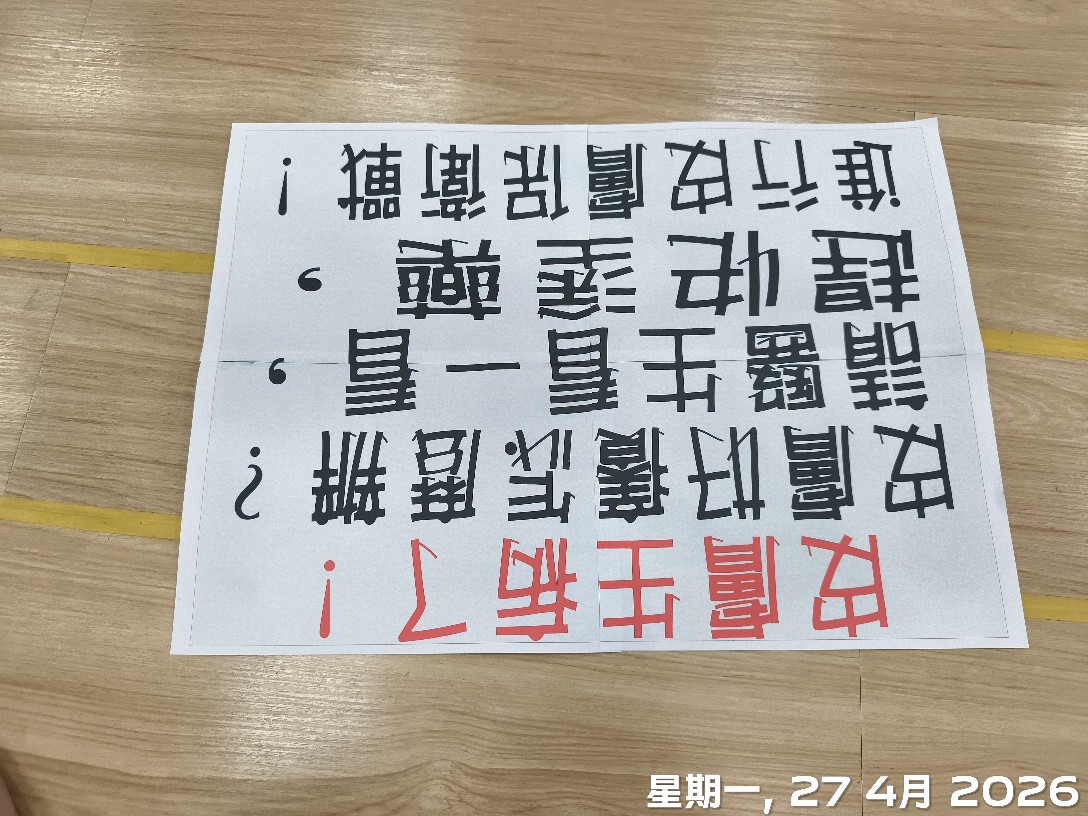 皮膚生病了！
皮膚好癢怎麼辦？
請醫生看一看，
趕快塗藥，
進行皮膚保衛戰！
星期一, 27 4月 2026